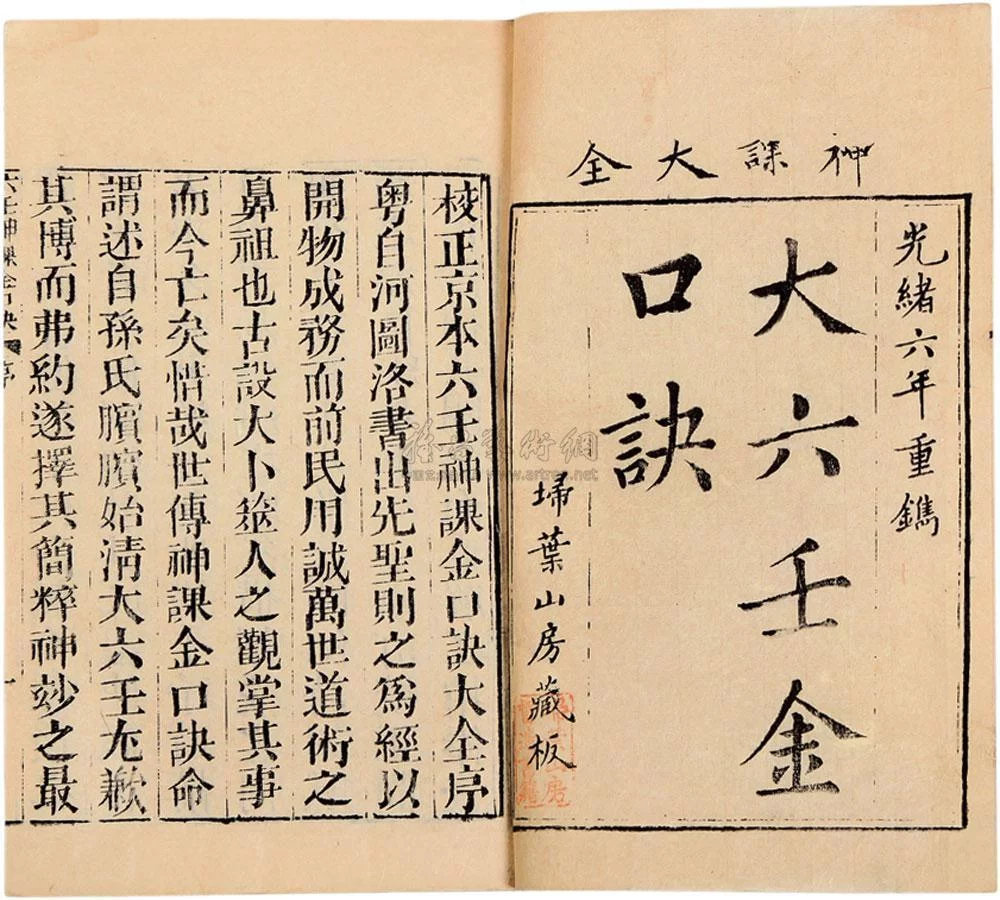 神課大全
光緒六年重鐫
大六壬金
口訣
埽葉山房藏板
校正京本六壬神課金口訣大全序
粵自河圖洛書出先聖則之為經以
開物成務而前民用誠萬世道術之
鼻祖也古設大卜筮人之觀掌其事
而今亡矣惜哉世傳神課金口訣命
謂述自孫氏臏臏始清大六壬尢歉
其博而弗約遂擇其簡粹神玅之最
六壬神課金口訣 序 一